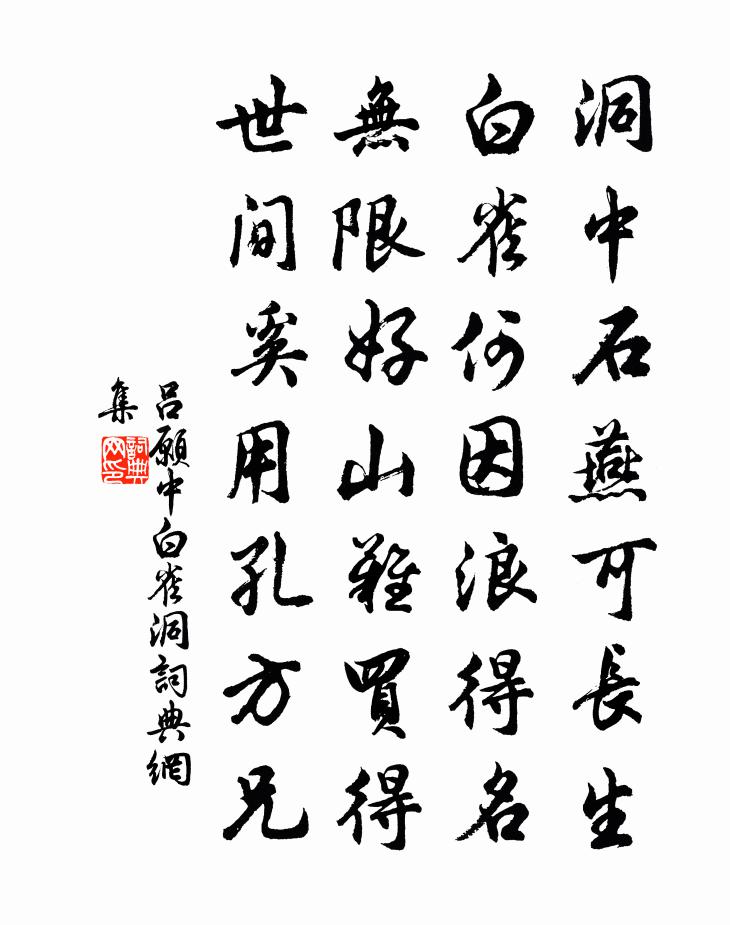 洞中石燕可長生
白雀何因浪得名
無限好山難買得
世間奚用孔方兄
呂願中白雀洞詞典網
集
詞典
网印